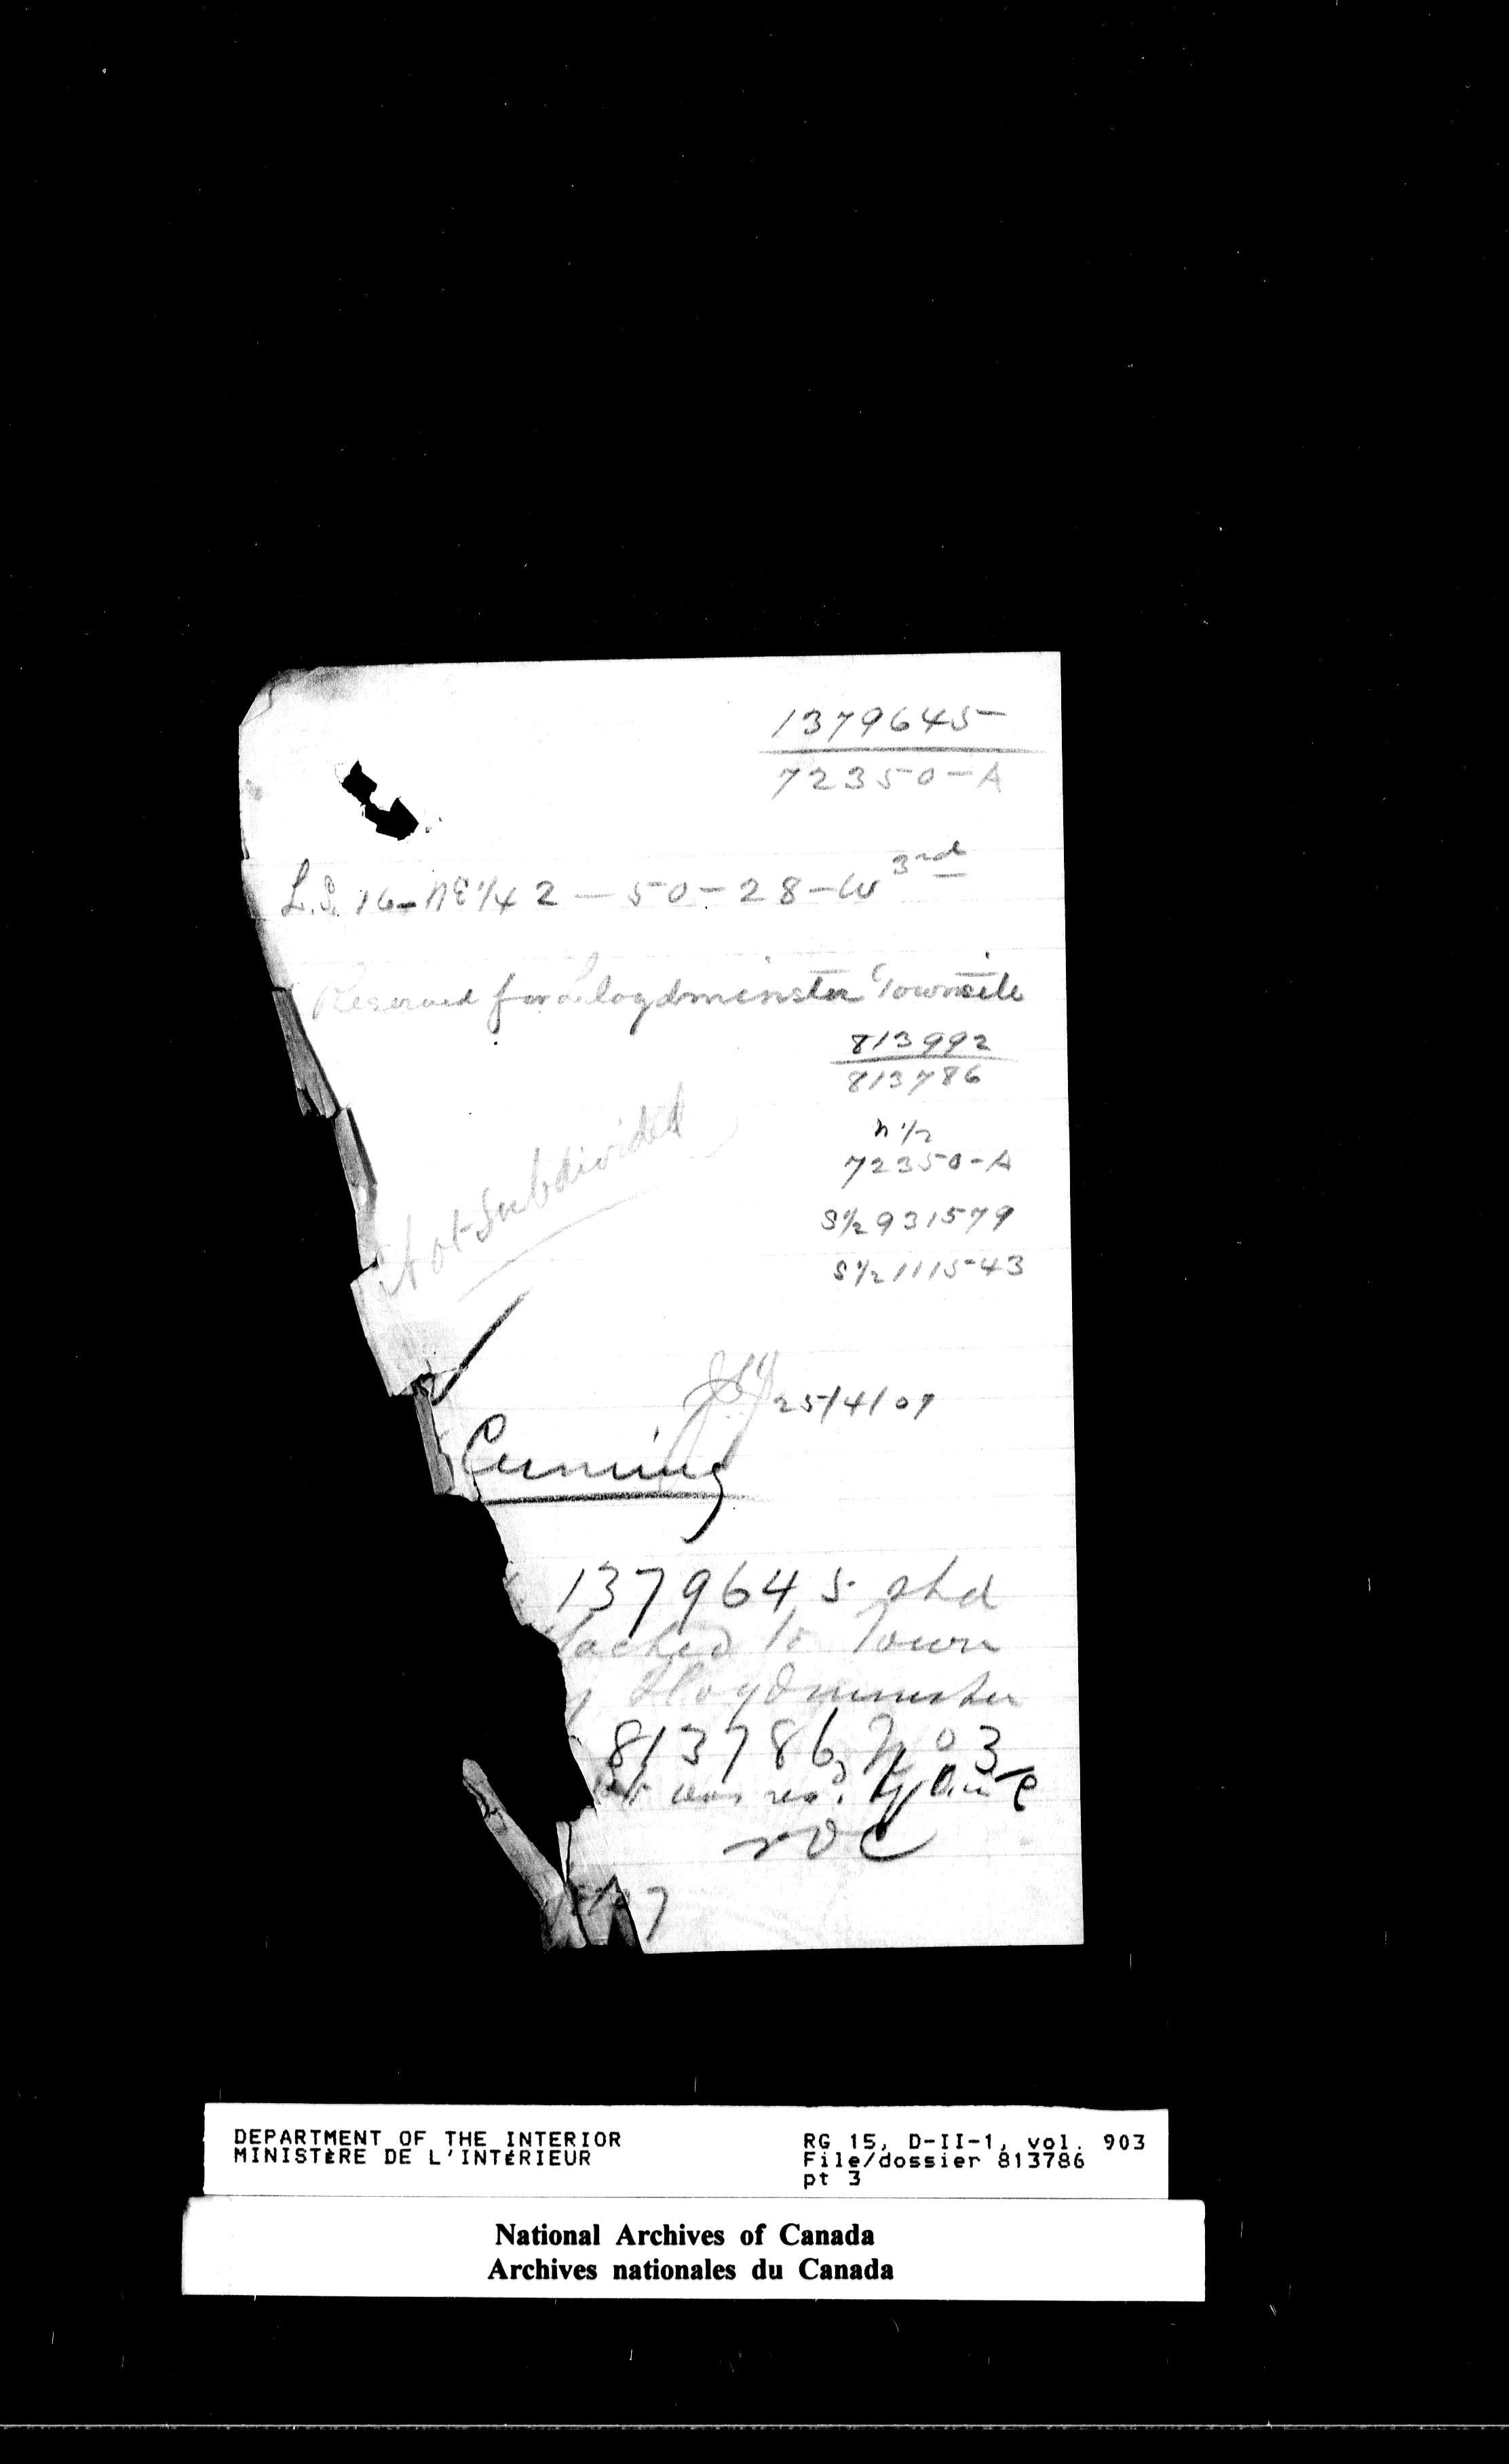 1379645
72350-A
L.S. 16-NE1/4 2-50-28-W 3rd
Reserved for Lloydminster Townsite
813992
813786
N 1/2
72350-A
S1/2 931579
S1/2 111543
Not Subdivided
25/4/07
Cuming
1379645 shd
tached to Town
Lloydminster
813786 No 3
was
DEPARTMENT OF THE INTERIOR
MINISTÈRE DE L'INTÉRIEUR
RG 15, D-II-1, vol. 903
File/dossier 813786
pt 3
National Archives of Canada
Archives nationales du Canada